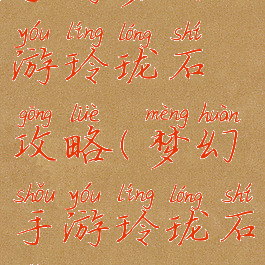 yóu líng lóng shí
游玲珑石
gōng lüè mèng huàn
攻略(梦幻
shǒu yóu líng lóng shí
手游玲珑石